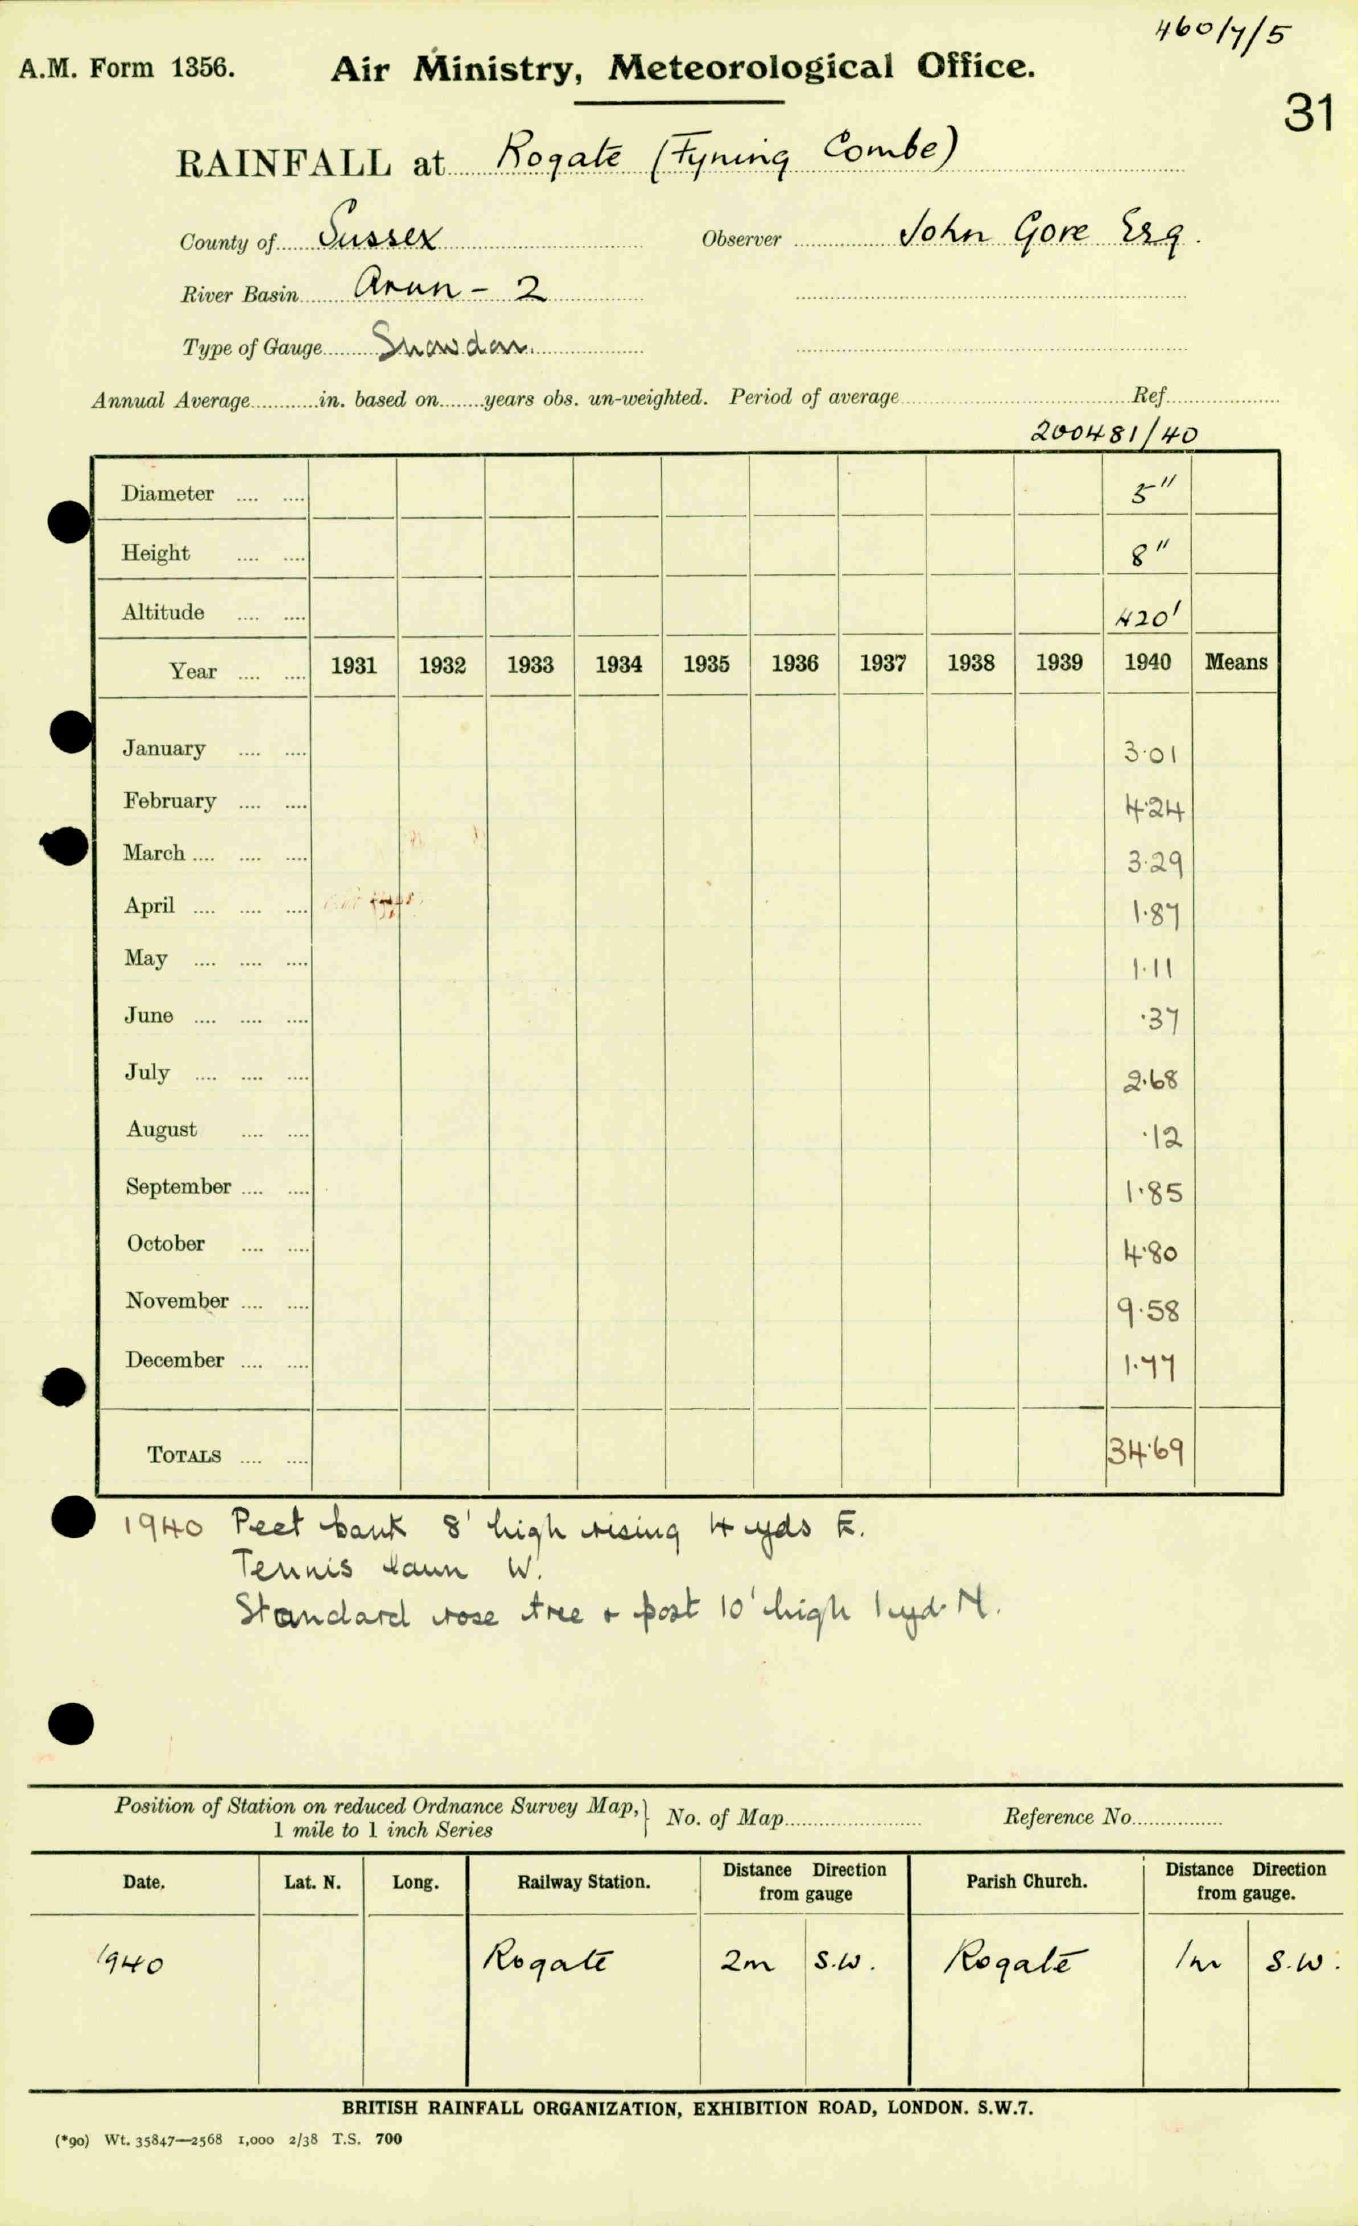 460/7/5
A.M. Form 1356. Air Ministry, Meteorological Office.
31
RAINFALL at Rogate (Fyning Combe)
County of Sussex Observer John Gore Esq.
River Basin Arun - 2
Type of Gauge Snowdon.
Annual Average in. based on years obs. un-weighted. Period of average Ref.
200481/40
Diameter 5"
Height 8"
Altitude 420'
Year 1931 1932 1933 1934 1935 1936 1937 1938 1939 1940 Means
January 3·01
February 4·24
March 3·29
April 1·87
May 1·11
June ·37
July 2·68
August ·12
September 1·85
October 4·80
November 9·58
December 1·77
TOTALS 34·69
1940 Peet bank 8' high rising 4 yds E.
Tennis lawn W.
Standard rose tree + post 10' high 1 yd N.
Position of Station on reduced Ordnance Survey Map, } No. of Map Reference No.
1 mile to 1 inch Series
Date. Lat. N. Long. Railway Station. Distance Direction from gauge Parish Church. Distance Direction from gauge.
1940 Rogate 2m S.W. Rogate 1m S.W.
BRITISH RAINFALL ORGANIZATION, EXHIBITION ROAD, LONDON. S.W.7.
(*90) Wt. 35847—2568 1,000 2/38 T.S. 700